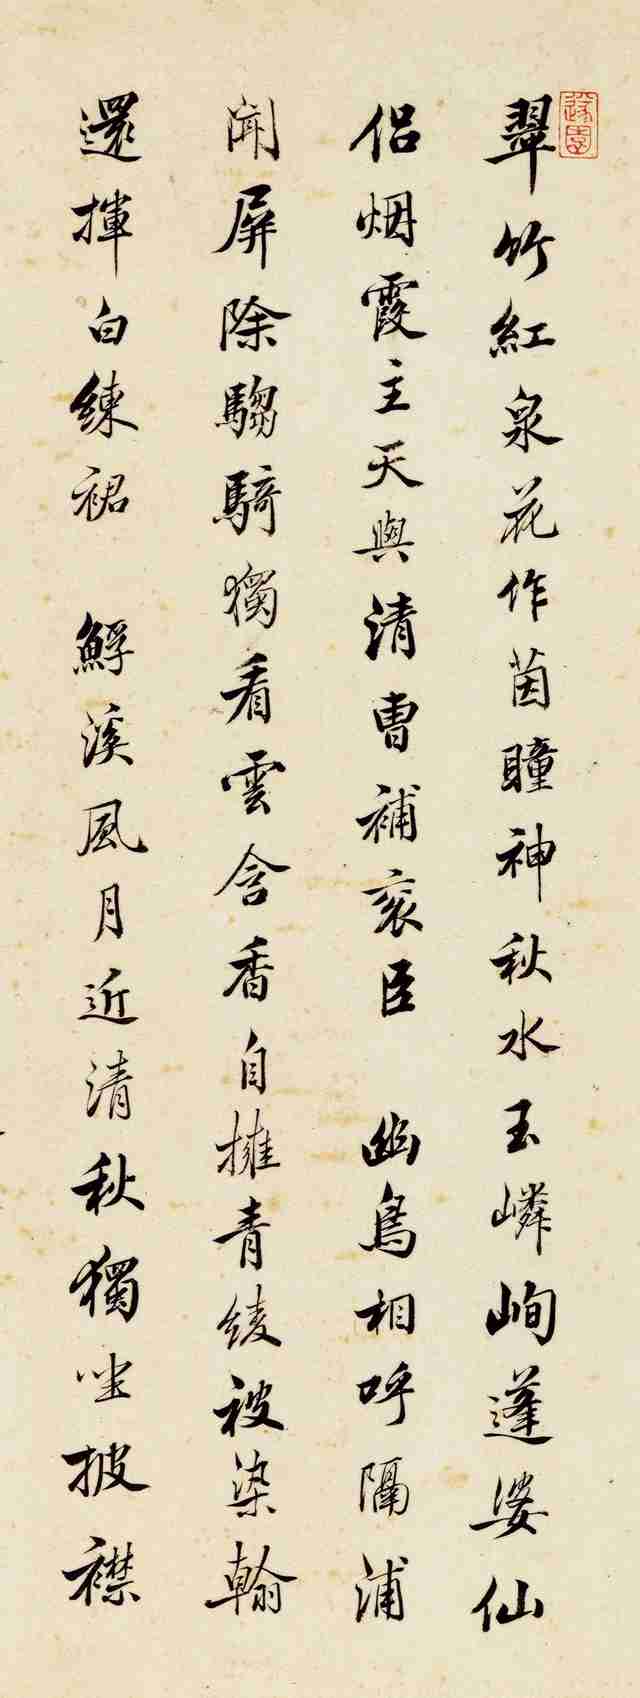 翠竹紅泉花作茵瞳神秋水玉嶙峋蓬婆仙
侣烟霞主天與清曹補衮臣 幽鳥相呼隔浦
闻屏除騶騎獨看雲含香自擁青綾被染翰
還揮白練裙 鰕溪風月近清秋獨坐披襟